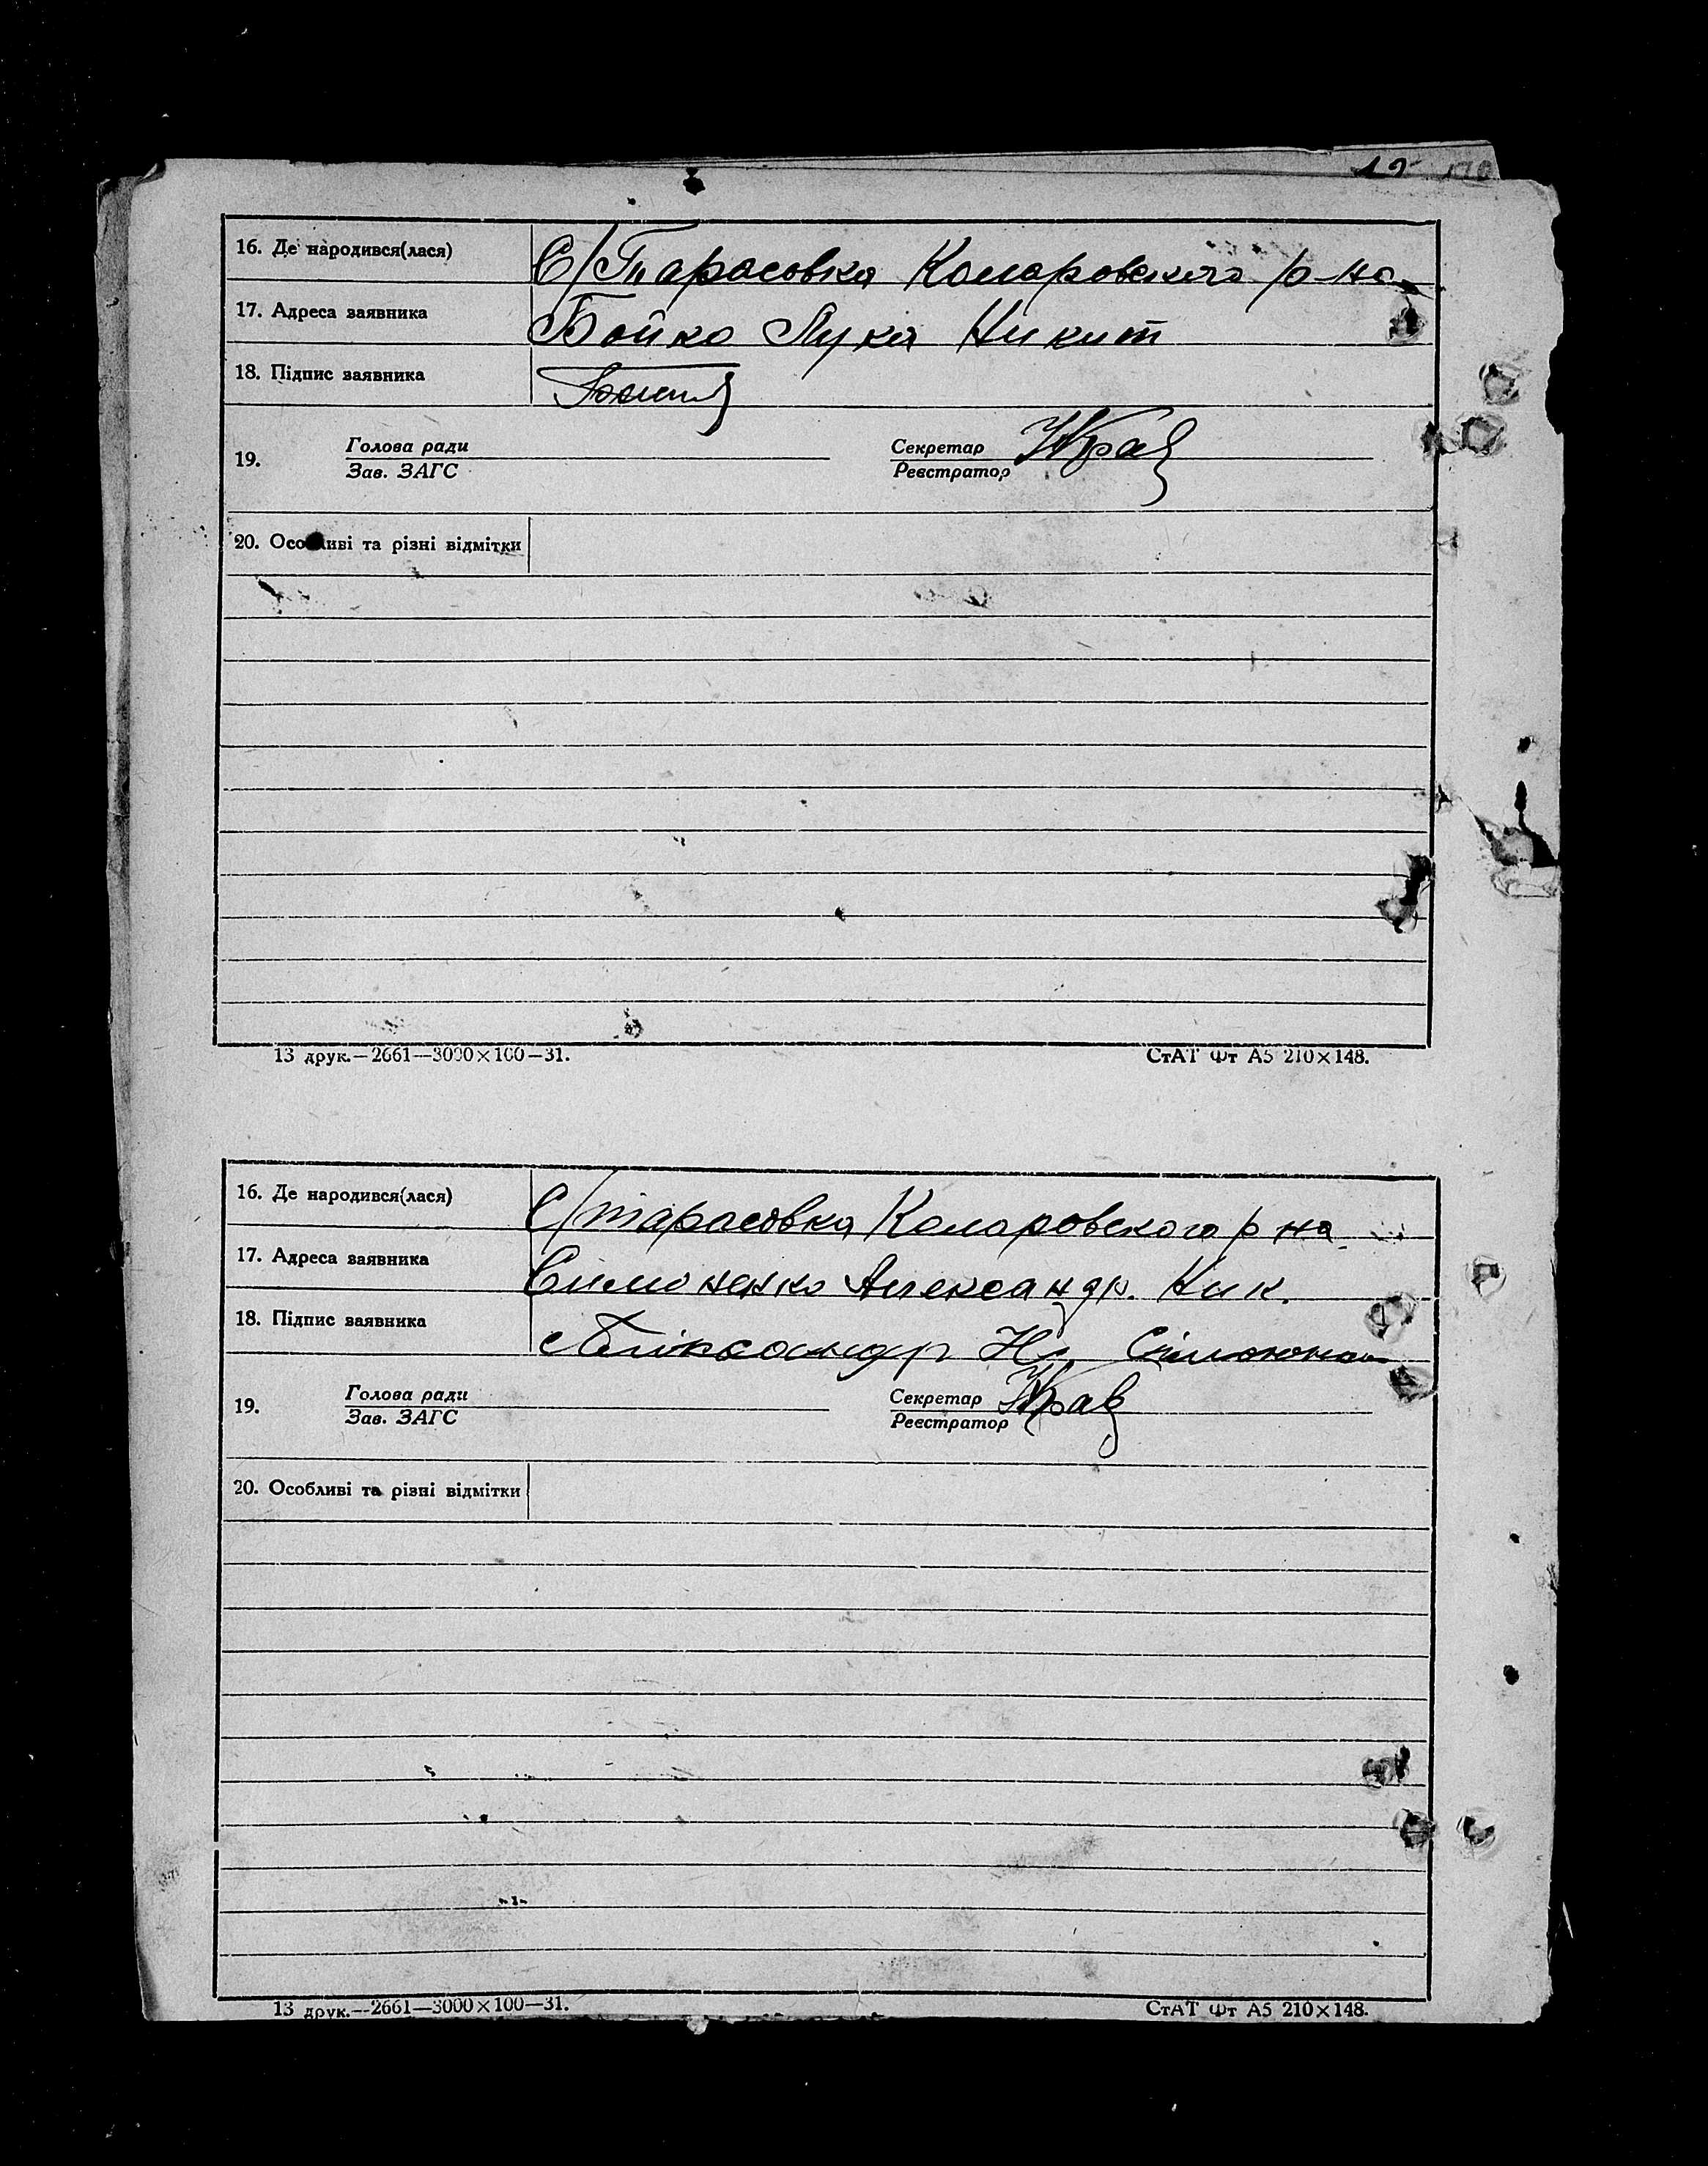 16. Де народився(лася) С/Тарасовка Комаровского р-на
17. Адреса заявника Бойко Лука Никит
18. Підпис заявника
19. Голова ради Секретар Крав
Зав. ЗАГС Реєстратор
20. Особливі та різні відмітки
13 друк.—2661—3000×100—31. СтАТ Фт А5 210×148.
16. Де народився(лася) С/тарасовка Комаровского р на
17. Адреса заявника Симоненко Александр. Ник.
18. Підпис заявника
19. Голова ради Секретар Крав
Зав. ЗАГС Реєстратор
20. Особливі та різні відмітки
13 друк.—2661—3000×100—31. СтАТ Фт А5 210×148.